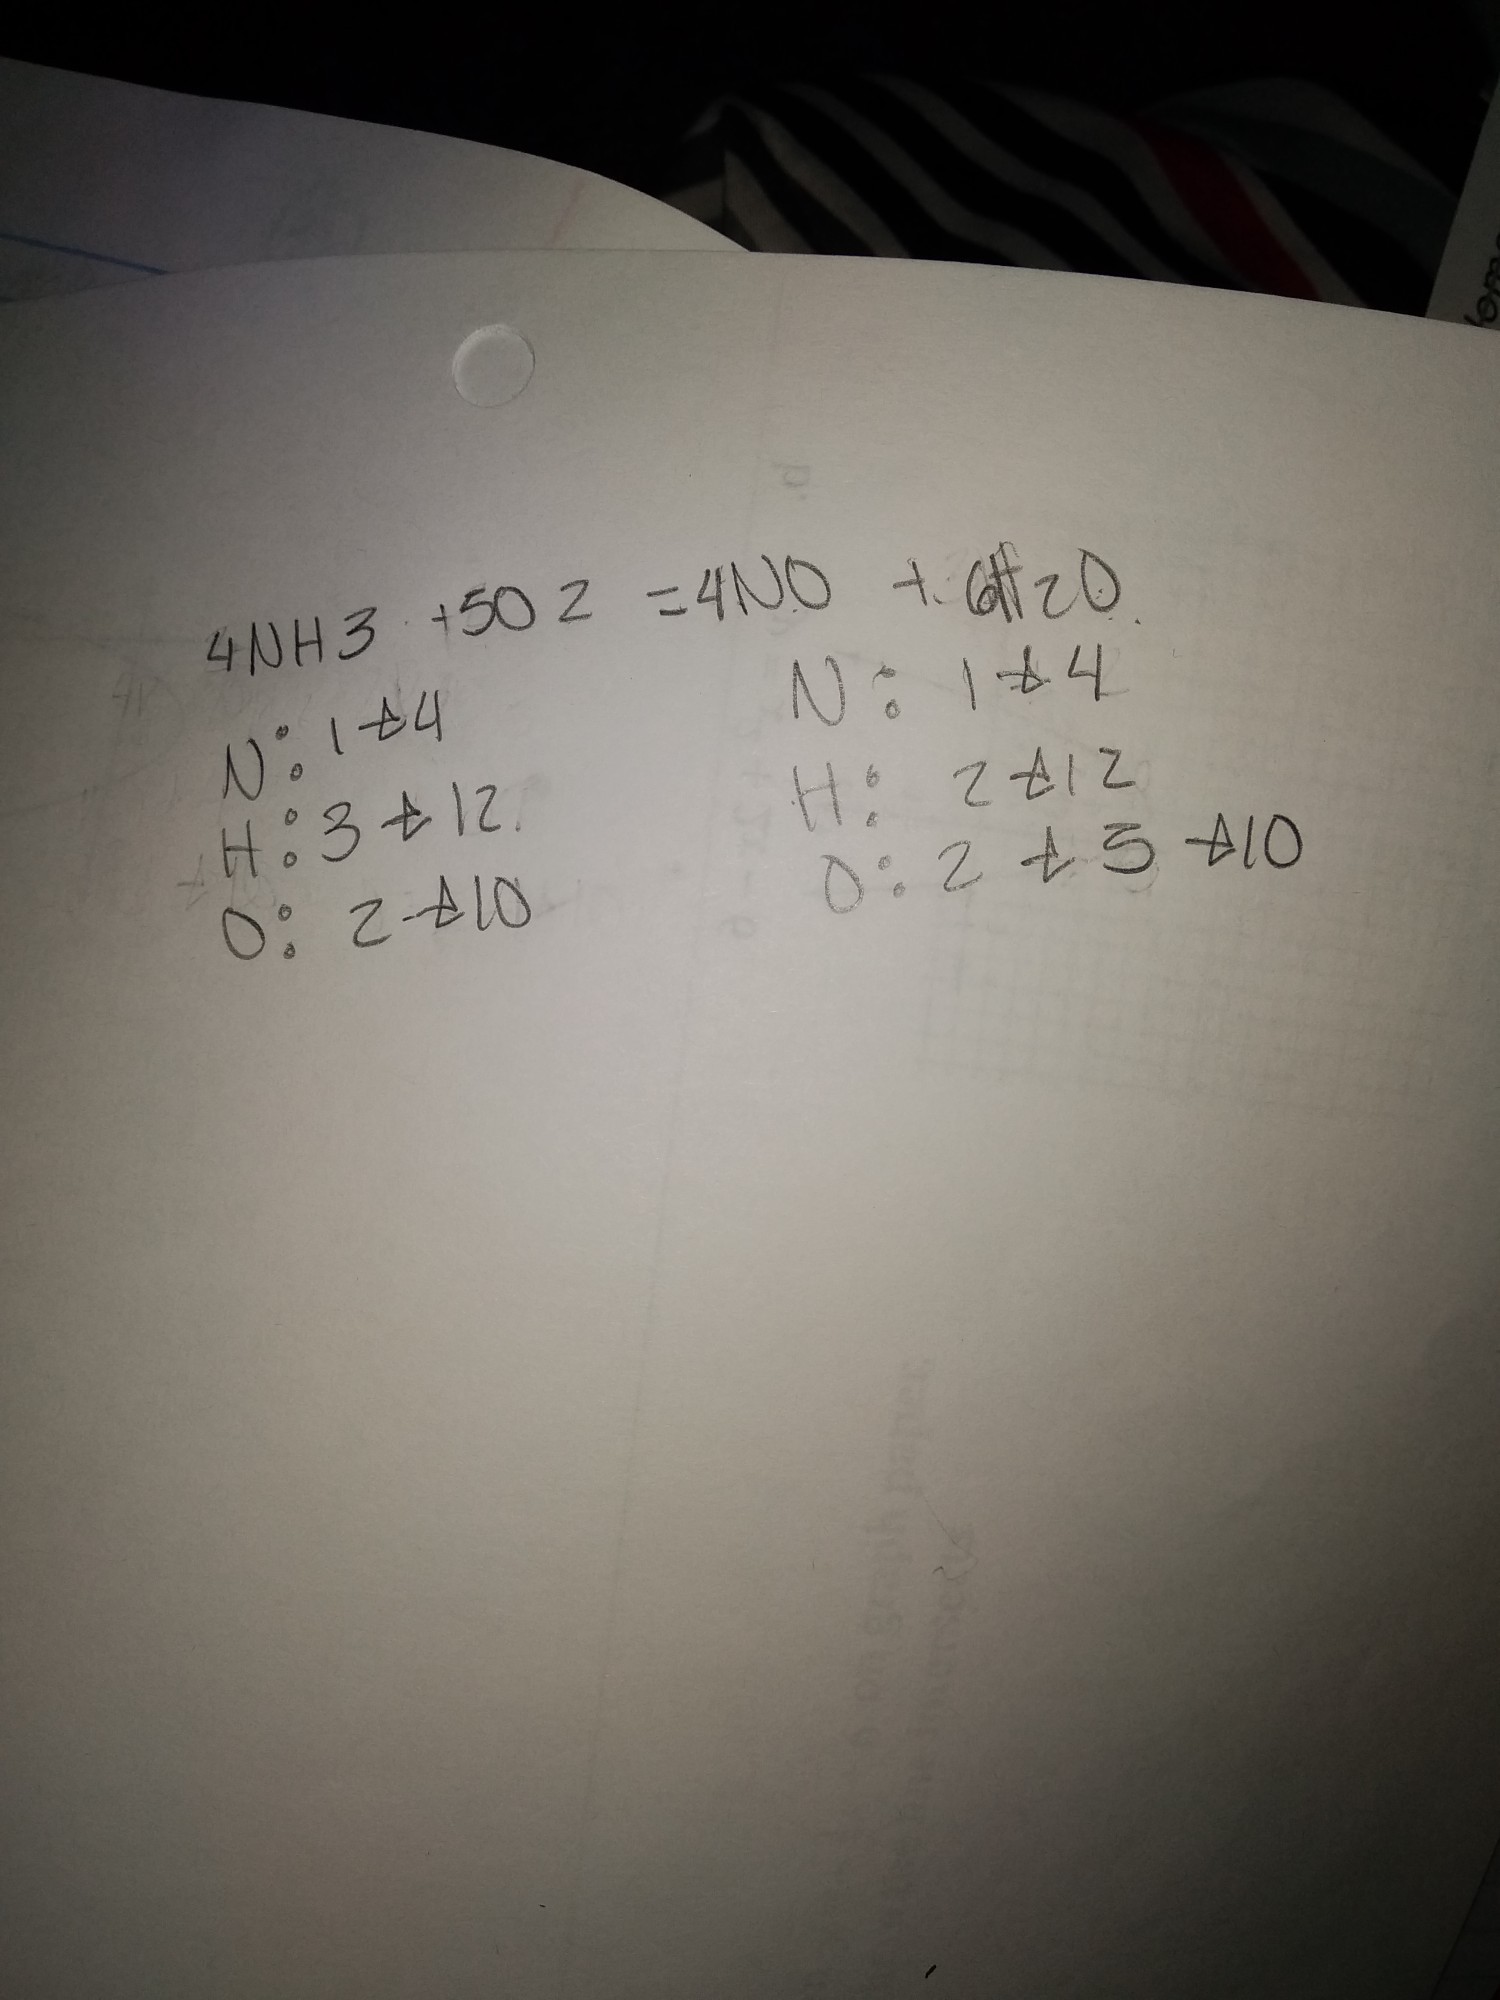 4NH3 +5O2 =4NO + 6H2O
N: 1→4 N: 1→4
H: 3→12 H: 2→12
O: 2→10 O: 2→5→10